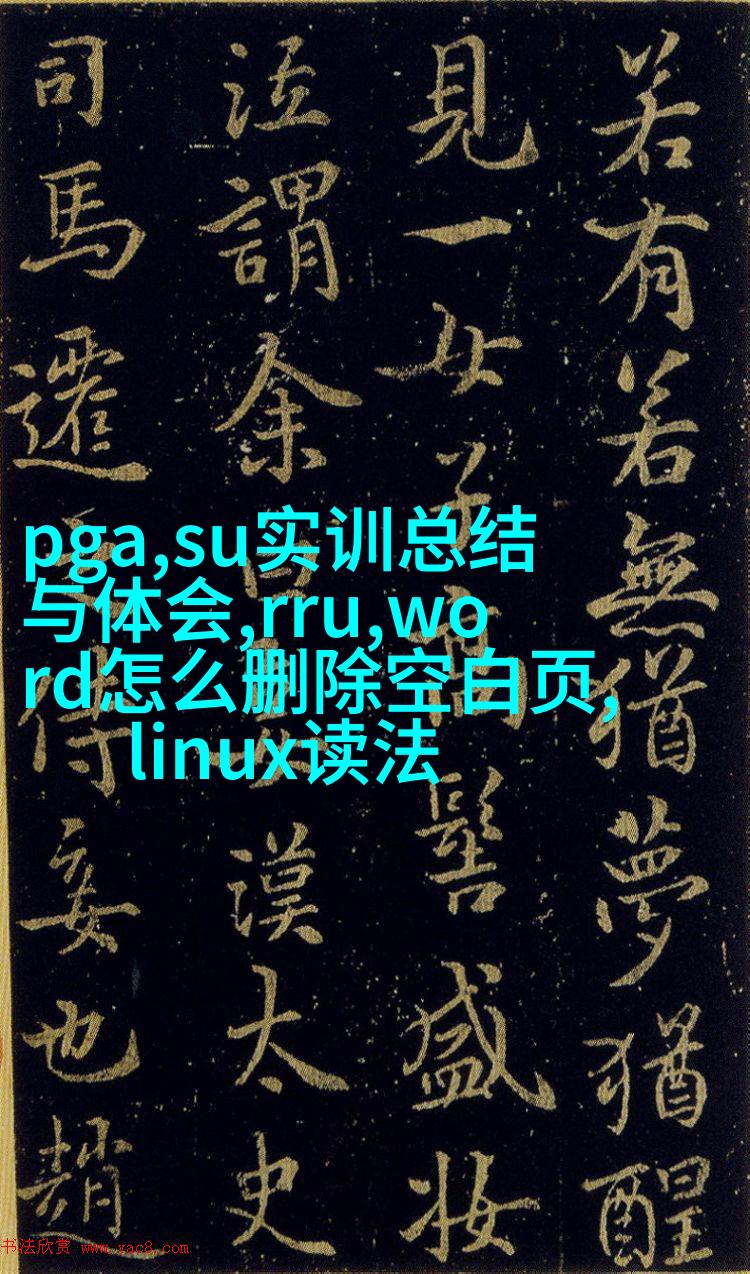 若有若無猶夢猶醒
見一女子高髻盛妝
泣謂余曰漢太史
司馬遷之侍妾也趙
pga,su实训总结
与体会,rru,wo
rd怎么删除空白页,
linux读法
书法欣赏 www.yac8.com